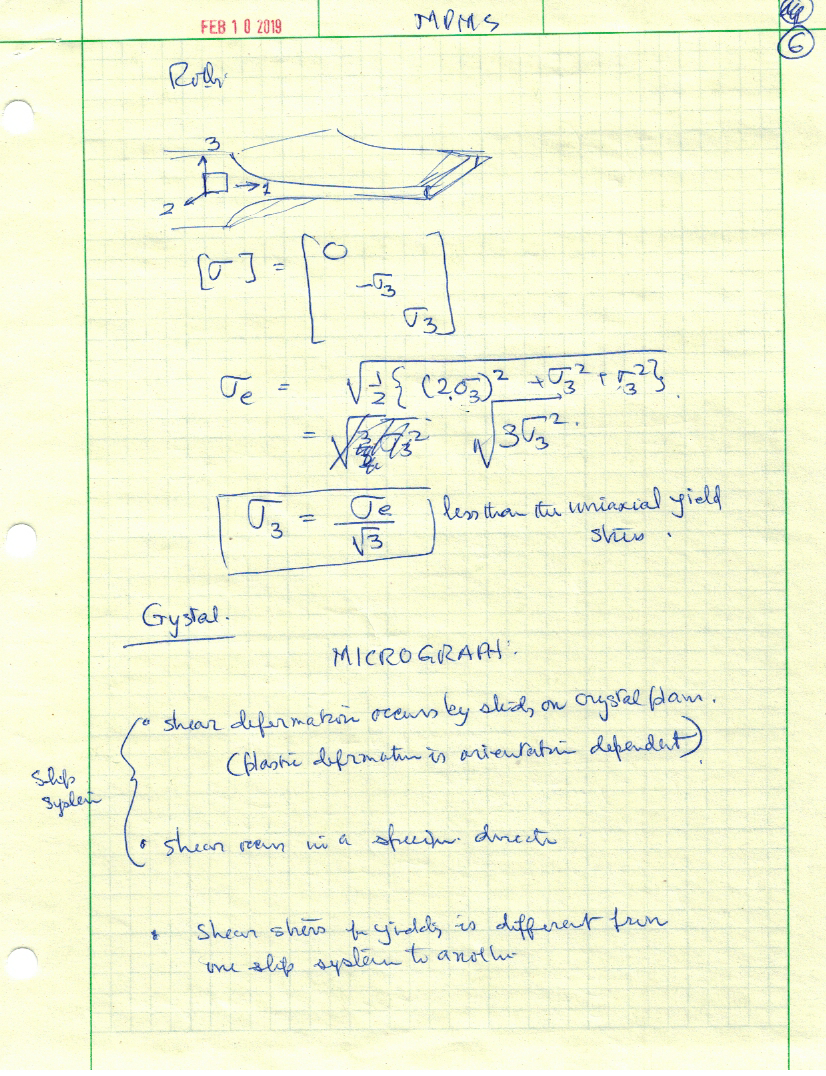 FEB 10 2019
MDMS
6
3
1
2
[σ] = [0
-σ3
σ3]
σe = √1/2{(2σ3)² + σ3² + σ3²}
= √3σ3².
σ3 = σe/√3 less than the uniaxial yield
stress.
Crystal.
MICROGRAPH.
• shear deformation occurs by sliding on crystal planes.
(plastic deformation is orientation dependent).
slip
system
• shear occurs in a specific direction
• Shear stress for yielding is different from
one slip system to another